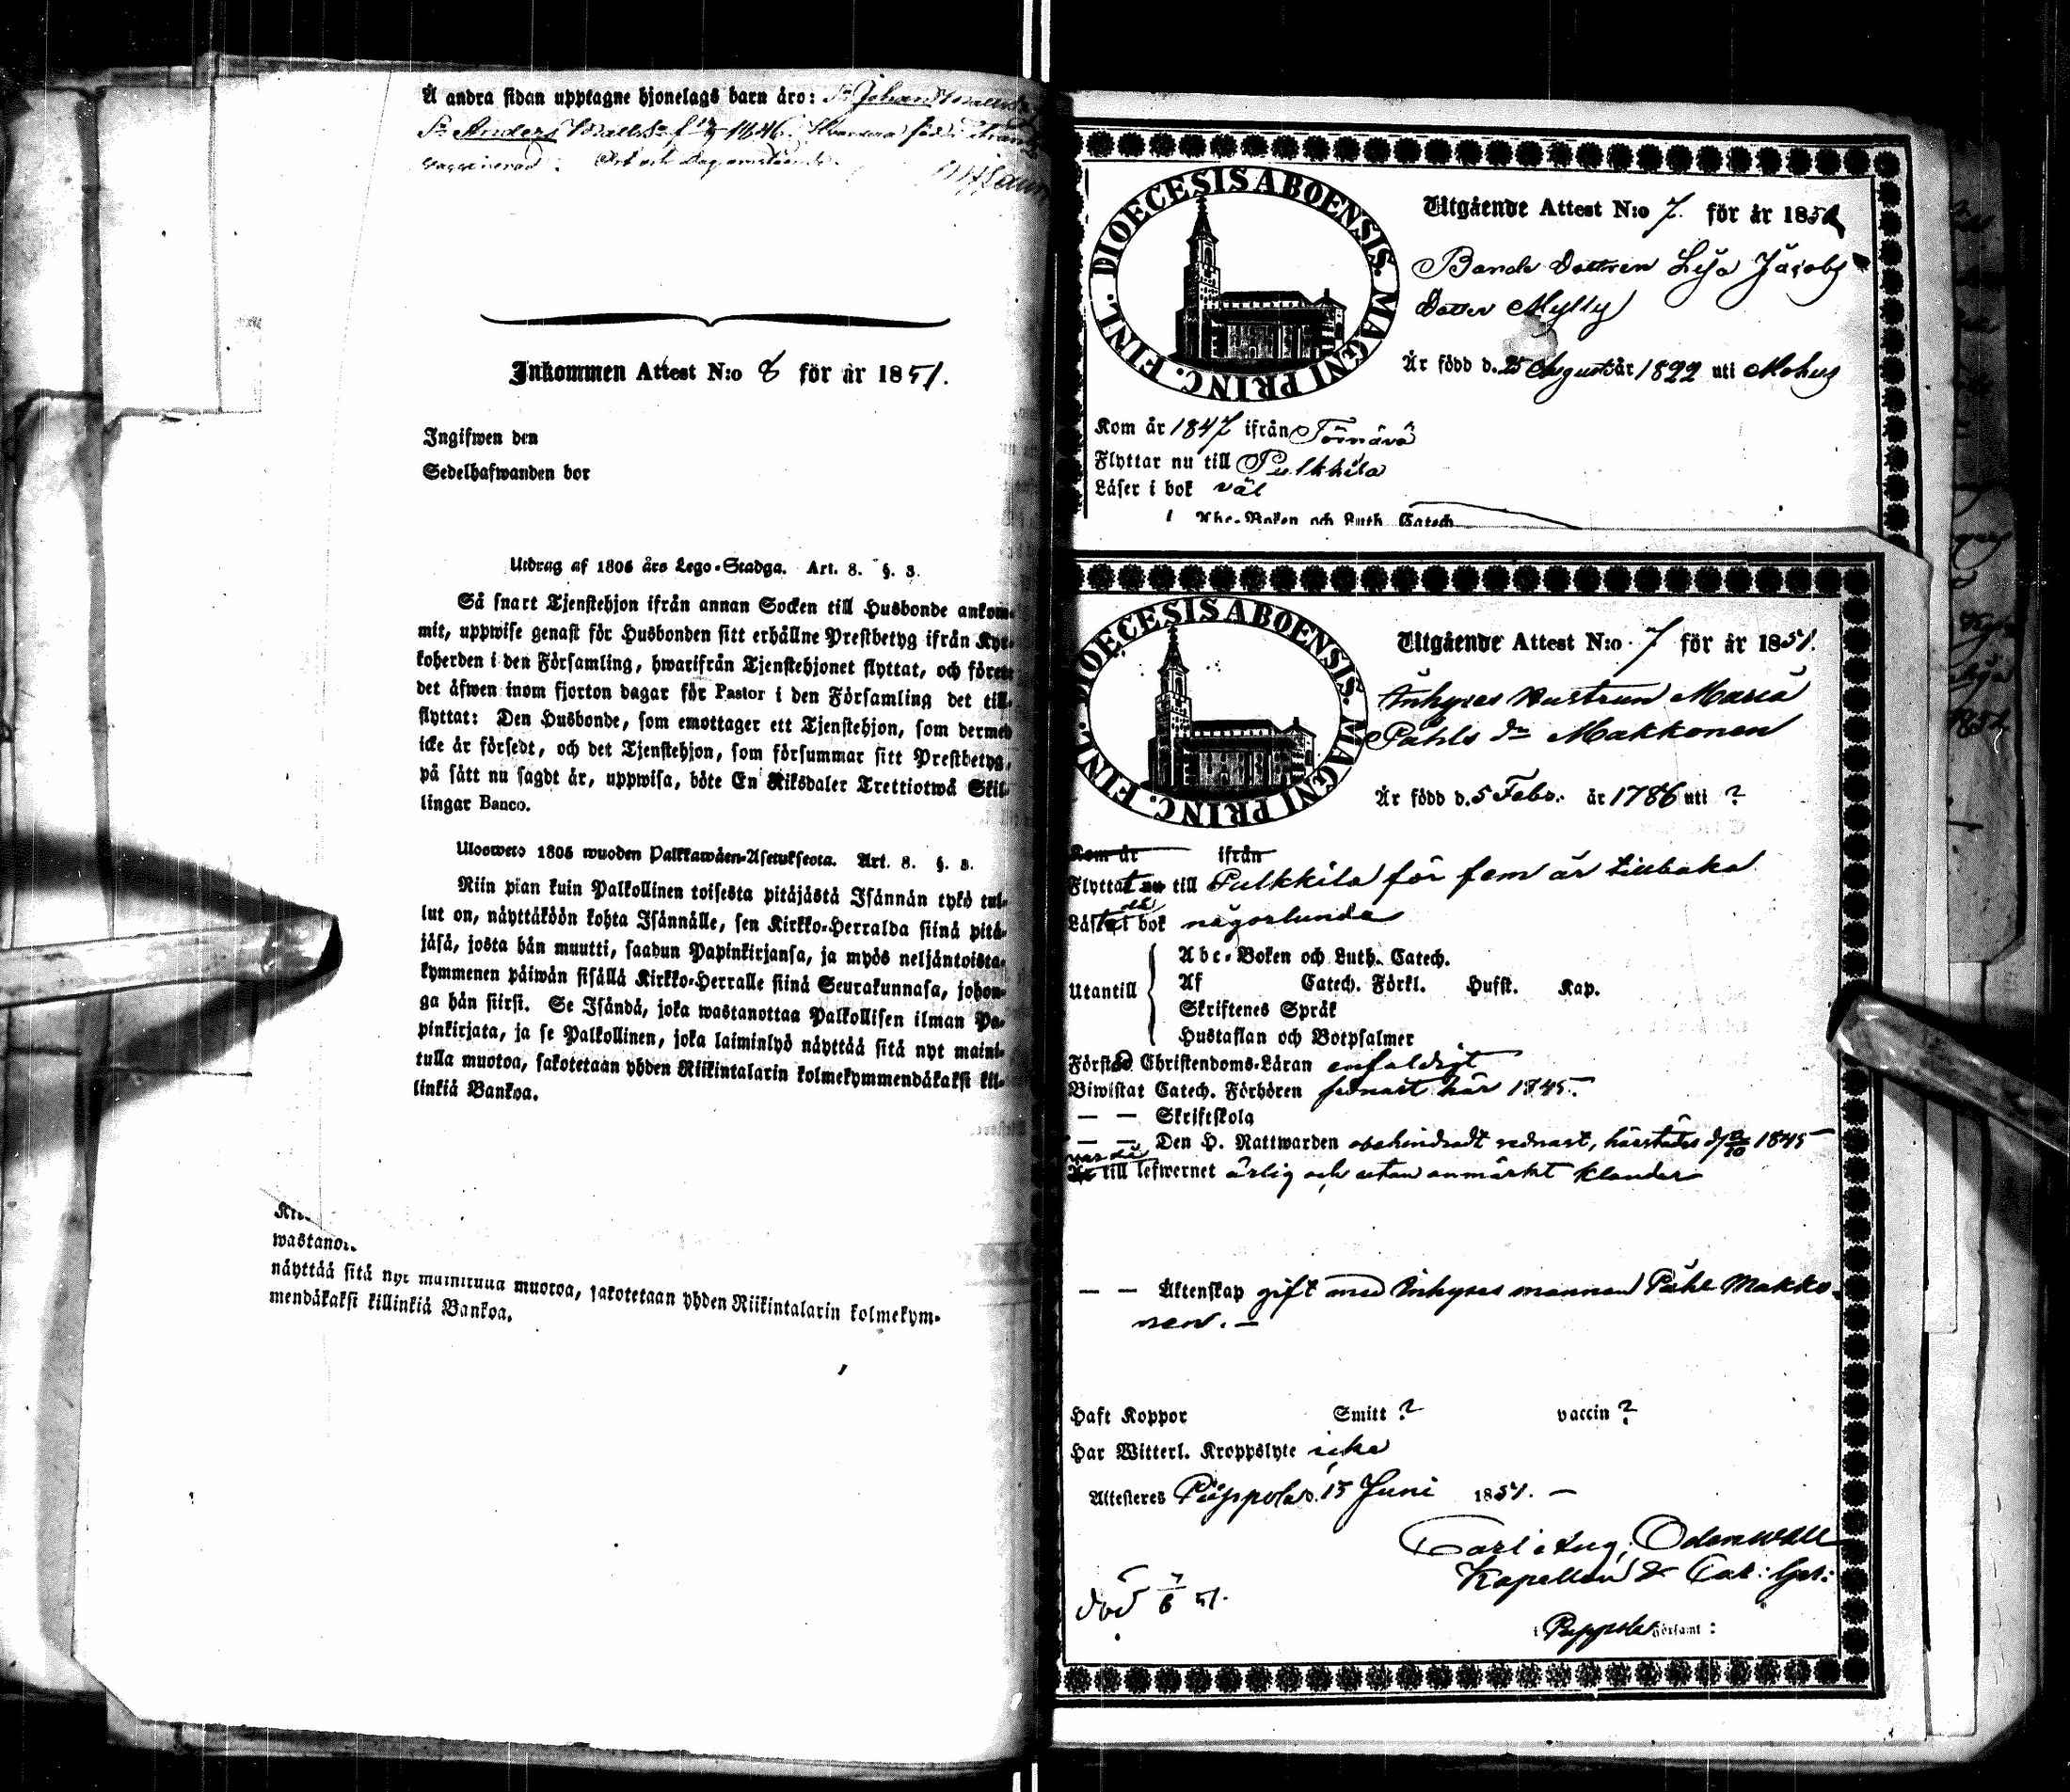 Å andra sidan upptagne hjonelags barn äro: Sn Johan
Sn Anders 1846.
vaccinerad. Ort och dag
Inkommen Attest N:o 8 för år 1851.
Ingifwen den
Sedelhafwanden bor
Utdrag af 1805 års Lego-Stadga. Art. 8. §. 3.
Så snart Tjenstehjon ifrån annan Socken till Husbonde ankom-
mit, uppwise genast för Husbonden sitt erhållne Prestbetyg ifrån Kyr-
koherden i den Församling, hwarifrån Tjenstehjonet flyttat, och förete
det äfwen inom fjorton dagar för Pastor i den Församling det till-
flyttat: Den Husbonde, som emottager ett Tjenstehjon, som dermed
icke är försedt, och det Tjenstehjon, som försummar sitt Prestbetyg,
på sätt nu sagdt är, uppwisa, böte En Riksdaler Trettiotwå Skil-
lingar Banco.
Ulosweto 1805 wuoden Palkkawäen-Asetuksesta. Art. 8. §. 3.
Niin pian kuin Palkollinen toisesta pitäjästä Isännän tykö tul-
lut on, näyttäköön kohta Isännälle, sen Kirkko-Herralda siinä pitä-
jäsä, josta hän muutti, saadun Papinkirjansa, ja myös neljäntoista-
kymmenen päiwän sisällä Kirkko-Herralle siinä Seurakunnasa, johon-
ga hän siirsi. Se Isändä, joka wastanottaa Palkollisen ilman Pa-
pinkirjata, ja se Palkollinen, joka laiminlyö näyttää sitä nyt maini-
tulla muotoa, sakotetaan yhden Riikintalarin kolmekymmendäkaksi kil-
linkiä Bankoa.
näyttää sitä nyt mainitulla muotoa, sakotetaan yhden Riikintalarin kolmekym-
mendäkaksi killinkiä Bankoa.
DIOECESIS ABOENSIS. MAGNI PRINC. FINL.
Utgående Attest N:o 7. för år 185
Bonde Dottren Lisa Jacobs
Dotter Mylly
Är född d. 25 August år 1822 uti Mohus
Kom år 1847 ifrån Törnävä
Flyttar nu till Pulkkila
Läser i bok väl
Abc-Boken och Luth. Catech.
DIOECESIS ABOENSIS. MAGNI PRINC. FINL.
Utgående Attest N:o 7 för år 1851.
Inhyses Hustrun Maria
Påhls dr Makkonen
Är född d. 5 Febr. år 1786 uti ?
Kom år ifrån
Flyttat nu till Pulkkila för fem år tillbaka
Läste i bok någorlunda
Utantill
Abc-Boken och Luth. Catech.
Af Catech. Förkl. Hufst. Kap.
Skriftenes Språk
Hustaflan och Botpsalmer
Förstod Christendoms-Läran enfaldigt
Biwistat Catech. Förhören senast här 1845.
— — Skriftskola
— — Den H. Nattwarden obehindradt sednast, härstädes d. 1845
till lefwernet ärlig och utan anmärkt klander
— — Äktenskap gift med Inhyses mannen Påhl Makko-
nen. —
Haft Koppor Smitt ? vaccin ?
Har Witterl. Kroppslyte icke
Attesteres Pippola d. 15 Juni 1851. —
Carl Aug. Odenwall
Kapellan &
i Pippola Församl:
död 7/6 51.